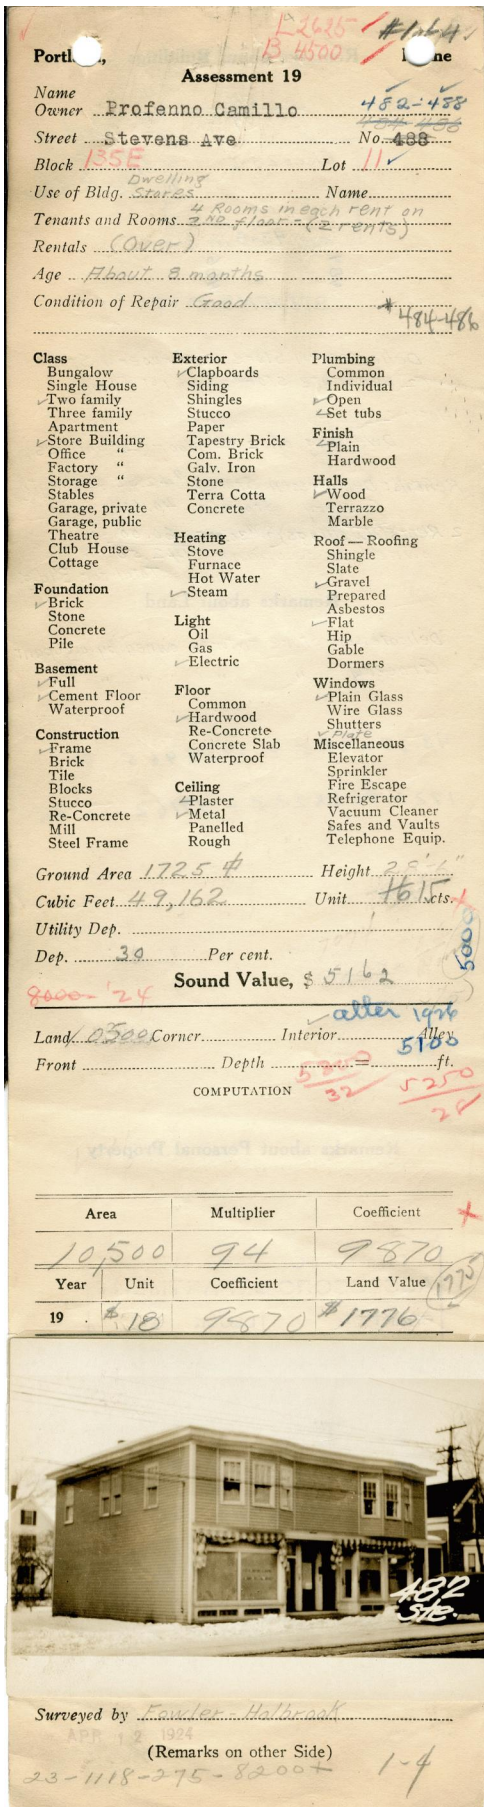 L 2625 / #1 of 4
B 4500 /
Portland, Maine
Assessment 19
Name
Owner Profenno Camillo 482-488
484-486
Street Stevens Ave No. 488
Block 135E Lot 11
Dwelling
Use of Bldg. Stores Name
4 Rooms in each rent on
Tenants and Rooms 2ND floor - (2 rents)
Rentals (Over)
Age About 8 months
Condition of Repair Good
* 484-486
Class
Bungalow
Single House
✓Two family
Three family
Apartment
✓Store Building
Office "
Factory "
Storage "
Stables
Garage, private
Garage, public
Theatre
Club House
Cottage
Foundation
✓Brick
Stone
Concrete
Pile
Basement
✓Full
✓Cement Floor
Waterproof
Construction
✓Frame
Brick
Tile
Blocks
Stucco
Re-Concrete
Mill
Steel Frame
Exterior
✓Clapboards
Siding
Shingles
Stucco
Paper
Tapestry Brick
Com. Brick
Galv. Iron
Stone
Terra Cotta
Concrete
Heating
Stove
Furnace
Hot Water
✓Steam
Light
Oil
Gas
✓Electric
Floor
Common
✓Hardwood
Re-Concrete
Concrete Slab
Waterproof
Ceiling
✓Plaster
✓Metal
Panelled
Rough
Plumbing
Common
Individual
✓Open
✓Set tubs
Finish
✓Plain
Hardwood
Halls
✓Wood
Terrazzo
Marble
Roof — Roofing
Shingle
Slate
✓Gravel
Prepared
Asbestos
✓Flat
Hip
Gable
Dormers
Windows
✓Plain Glass
Wire Glass
Shutters
✓Plate
Miscellaneous
Elevator
Sprinkler
Fire Escape
Refrigerator
Vacuum Cleaner
Safes and Vaults
Telephone Equip.
Ground Area 1725 Height
Cubic Feet 49,162 Unit cts.
Utility Dep.
5000
Dep. 30 Per cent.
Sound Value, $ 5162
8000-'24
after 1926
Land 10500 Corner Interior Alley
5100
Front Depth = ft.
5200
32
5250
28
COMPUTATION
Area Multiplier Coefficient
10,500 94 9870
Year Unit Coefficient Land Value 1775
19 $18 9870 $1776
482
Ste.
Surveyed by Fowler - Holbrook
APR 12 1924
(Remarks on other Side)
23-1118-275-8200+ 1-4